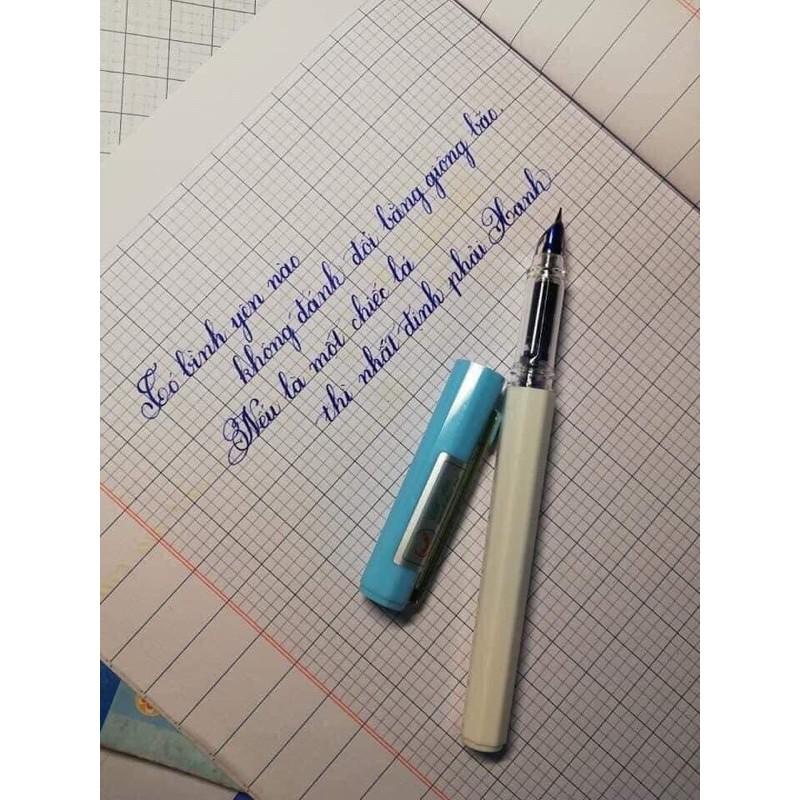 Có bình yên nào
không đánh đổi bằng giông bão.
Nếu là một chiếc lá
thì nhất định phải Xanh